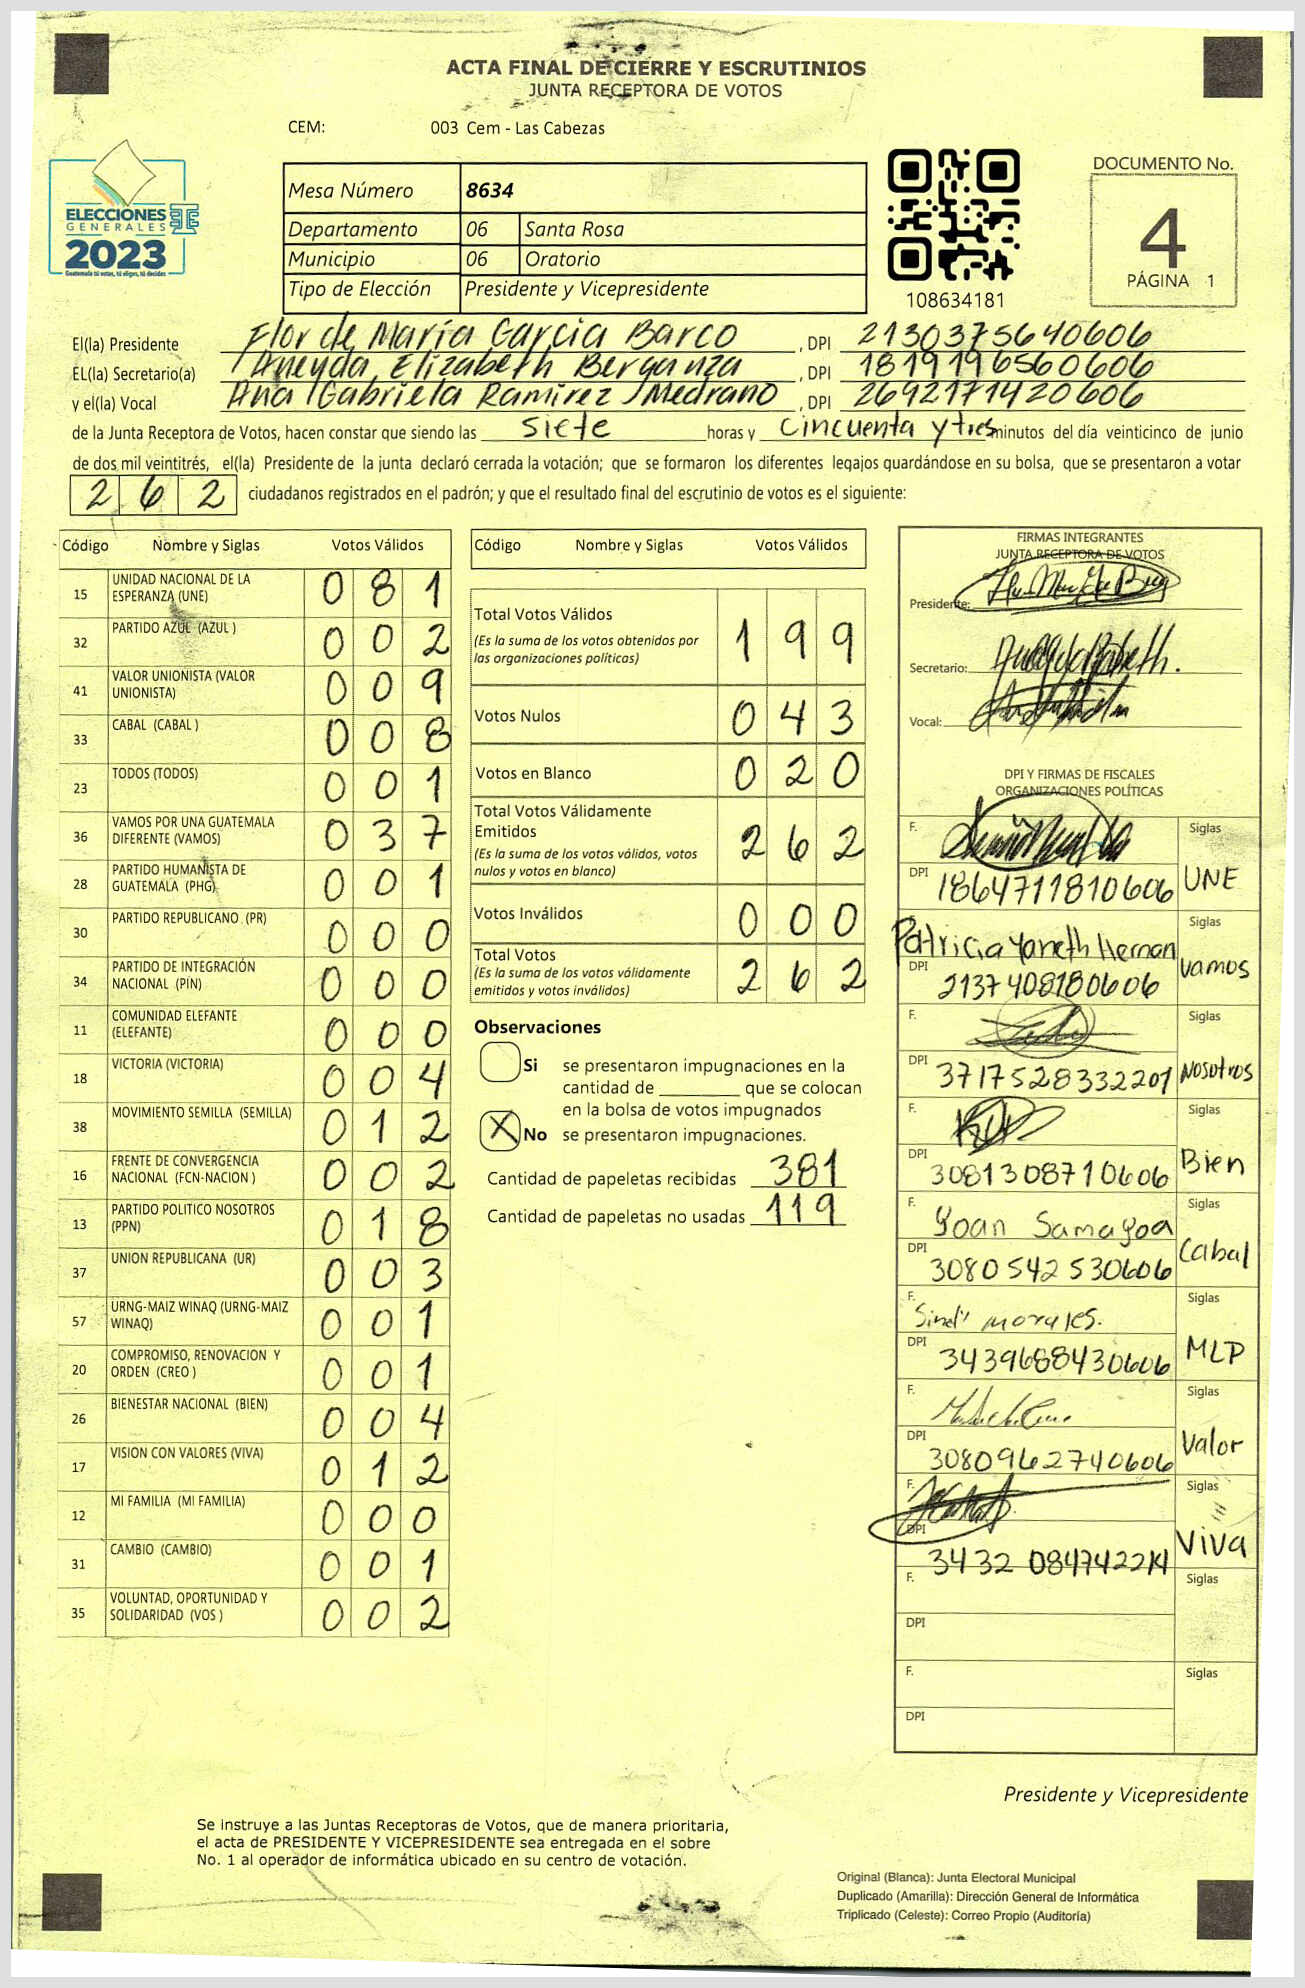 ACTA FINAL DE CIERRE Y ESCRUTINIOS
JUNTA RECEPTORA DE VOTOS
CEM: 003 Cem - Las Cabezas
ELECCIONES
GENERALES
2023
Guatemala tú votas, tú eliges, tú decides
Mesa Número 8634
Departamento 06 Santa Rosa
Municipio 06 Oratorio
Tipo de Elección Presidente y Vicepresidente
108634181
DOCUMENTO No.
4
PÁGINA 1
El(la) Presidente Flor de María Garcia Barco, DPI 2130375640606
EL(la) Secretario(a) Aneyda Elizabeth Berganza, DPI 1819196560606
y el(la) Vocal Ana Gabriela Ramirez Medrano, DPI 2692171420606
de la Junta Receptora de Votos, hacen constar que siendo las siete horas y cincuenta y tres minutos del día veinticinco de junio
de dos mil veintitrés, el(la) Presidente de la junta declaró cerrada la votación; que se formaron los diferentes legajos guardándose en su bolsa, que se presentaron a votar
262 ciudadanos registrados en el padrón; y que el resultado final del escrutinio de votos es el siguiente:
Código Nombre y Siglas Votos Válidos
15 UNIDAD NACIONAL DE LA ESPERANZA (UNE) 0 8 1
32 PARTIDO AZUL (AZUL ) 0 0 2
41 VALOR UNIONISTA (VALOR UNIONISTA) 0 0 9
33 CABAL (CABAL ) 0 0 8
23 TODOS (TODOS) 0 0 1
36 VAMOS POR UNA GUATEMALA DIFERENTE (VAMOS) 0 3 7
28 PARTIDO HUMANISTA DE GUATEMALA (PHG) 0 0 1
30 PARTIDO REPUBLICANO (PR) 0 0 0
34 PARTIDO DE INTEGRACIÓN NACIONAL (PIN) 0 0 0
11 COMUNIDAD ELEFANTE (ELEFANTE) 0 0 0
18 VICTORIA (VICTORIA) 0 0 4
38 MOVIMIENTO SEMILLA (SEMILLA) 0 1 2
16 FRENTE DE CONVERGENCIA NACIONAL (FCN-NACION ) 0 0 2
13 PARTIDO POLITICO NOSOTROS (PPN) 0 1 8
37 UNION REPUBLICANA (UR) 0 0 3
57 URNG-MAIZ WINAQ (URNG-MAIZ WINAQ) 0 0 1
20 COMPROMISO, RENOVACION Y ORDEN (CREO ) 0 0 1
26 BIENESTAR NACIONAL (BIEN) 0 0 4
17 VISION CON VALORES (VIVA) 0 1 2
12 MI FAMILIA (MI FAMILIA) 0 0 0
31 CAMBIO (CAMBIO) 0 0 1
35 VOLUNTAD, OPORTUNIDAD Y SOLIDARIDAD (VOS ) 0 0 2
Código Nombre y Siglas Votos Válidos
Total Votos Válidos 1 9 9
(Es la suma de los votos obtenidos por
las organizaciones políticas)
Votos Nulos 0 4 3
Votos en Blanco 0 2 0
Total Votos Válidamente
Emitidos 2 6 2
(Es la suma de los votos válidos, votos
nulos y votos en blanco)
Votos Inválidos 0 0 0
Total Votos 2 6 2
(Es la suma de los votos válidamente
emitidos y votos inválidos)
Observaciones
Si se presentaron impugnaciones en la
cantidad de ______ que se colocan
en la bolsa de votos impugnados
X No se presentaron impugnaciones.
Cantidad de papeletas recibidas 381
Cantidad de papeletas no usadas 119
FIRMAS INTEGRANTES
JUNTA RECEPTORA DE VOTOS
Presidente:
Secretario:
Vocal:
DPI Y FIRMAS DE FISCALES
ORGANIZACIONES POLÍTICAS
F. Siglas
DPI 1864711810606 UNE
Patricia Yaneth Hernan Siglas
DPI 2137408180606 Vamos
F. Siglas
DPI 3717528332201 Nosotros
F. Siglas
DPI 3081308710606 Bien
F. Yoan Samayoa Siglas
DPI 3080542530606 Cabal
F. Sindi morales. Siglas
DPI 3439688430606 MLP
F. Siglas
DPI 3080962740606 Valor
F. Siglas
DPI 3432 084742214 Viva
F. Siglas
DPI
F. Siglas
DPI
Presidente y Vicepresidente
Se instruye a las Juntas Receptoras de Votos, que de manera prioritaria,
el acta de PRESIDENTE Y VICEPRESIDENTE sea entregada en el sobre
No. 1 al operador de informática ubicado en su centro de votación.
Original (Blanca): Junta Electoral Municipal
Duplicado (Amarilla): Dirección General de Informática
Triplicado (Celeste): Correo Propio (Auditoría)